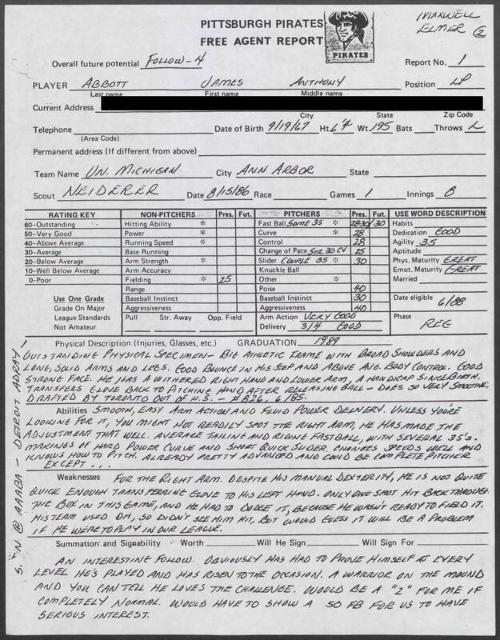 PITTSBURGH PIRATES
FREE AGENT REPORT
PIRATES
MAXWELL
ELMER 2
Overall future potential FOLLOW-4 Report No. 1
PLAYER ABBOTT JAMES ANTHONY Position LP
Last name First name Middle name
Current Address
City State Zip Code
Telephone Date of Birth 9/19/67 Ht. 6'4 Wt. 195 Bats Throws L
(Area Code)
Permanent address (If different from above)
Team Name UN. MICHIGAN City ANN ARBOR State
Scout NEIDERER Date 8/15/86 Race Games 1 Innings 8
RATING KEY NON-PITCHERS Pres. Fut. PITCHERS Pres. Fut. USE WORD DESCRIPTION
60–Outstanding Hitting Ability * Fast Ball SOME 35 30 Habits
50–Very Good Power * Curve * 28 Dedication GOOD
40–Above Average Running Speed * Control 28 Agility 35
30–Average Base Running Change of Pace 25 Aptitude
20–Below Average Arm Strength * Slider COUPLE 35 * 30 Phys. Maturity GREAT
10–Well Below Average Arm Accuracy Knuckle Ball Emot. Maturity GREAT
0–Poor Fielding * 25 Other * Married
Range Poise 40
Use One Grade Baseball Instinct Baseball Instinct 30 Date eligible 6/88
Grade On Major Aggressiveness Aggressiveness 40
League Standards Pull Str. Away Opp. Field Arm Action VERY GOOD Phase
Not Amateur Delivery 3/4 GOOD REG
Physical Description (Injuries, Glasses, etc.) GRADUATION 1989
OUTSTANDING PHYSICAL SPECIMEN – BIG ATHLETIC FRAME WITH BROAD SHOULDERS AND
LONG, SOLID ARMS AND LEGS. GOOD BOUNCE IN HIS STEP AND ABOVE AVG. BODY CONTROL. GOOD
STRONG FACE. HE HAS A WITHERED RIGHT HAND AND LOWER ARM, A HANDICAP SINCE BIRTH.
TRANSFERS GLOVE BACK TO PITCHING HAND AFTER RELEASING BALL – DOES SO VERY SMOOTHLY.
DRAFTED BY TORONTO OUT OF H.S. – #826, 6/85.
Abilities SMOOTH, EASY ARM ACTION AND FLUID POWER DELIVERY. UNLESS YOU'RE
LOOKING FOR IT, YOU MIGHT NOT READILY SPOT THE RIGHT ARM, HE HAS MADE THE
ADJUSTMENT THAT WELL. AVERAGE TAILING AND RIDING FASTBALL, WITH SEVERAL 35'S.
MAKINGS OF HARD POWER CURVE AND SHORT QUICK SLIDER. CHANGES SPEEDS WELL AND
KNOWS HOW TO PITCH. ALREADY PRETTY ADVANCED AND COULD BE COMPLETE PITCHER
EXCEPT...
Weaknesses FOR THE RIGHT ARM. DESPITE HIS MANUAL DEXTERITY, HE IS NOT QUITE
QUICK ENOUGH TRANSFERRING GLOVE TO HIS LEFT HAND. ONLY ONE SHOT HIT BACK THROUGH
THE BOX IN THIS GAME, AND HE HAD TO DODGE IT, BECAUSE HE WASN'T READY TO FIELD IT.
HIS TEAM USED DH, SO DIDN'T SEE HIM HIT, BUT WOULD GUESS IT WILL BE A PROBLEM
IF HE WERE TO PLAY IN OUR LEAGUE.
Summation and Signability · Worth Will He Sign Will Sign For
AN INTERESTING FOLLOW. OBVIOUSLY HAS HAD TO PROVE HIMSELF AT EVERY
LEVEL HE'S PLAYED AND HAS RISEN TO THE OCCASION. A WARRIOR ON THE MOUND
AND YOU CAN TELL HE LOVES THE CHALLENGE. WOULD BE A "2" FOR ME IF
COMPLETELY NORMAL. WOULD HAVE TO SHOW A 50 FB FOR US TO HAVE
SERIOUS INTEREST.